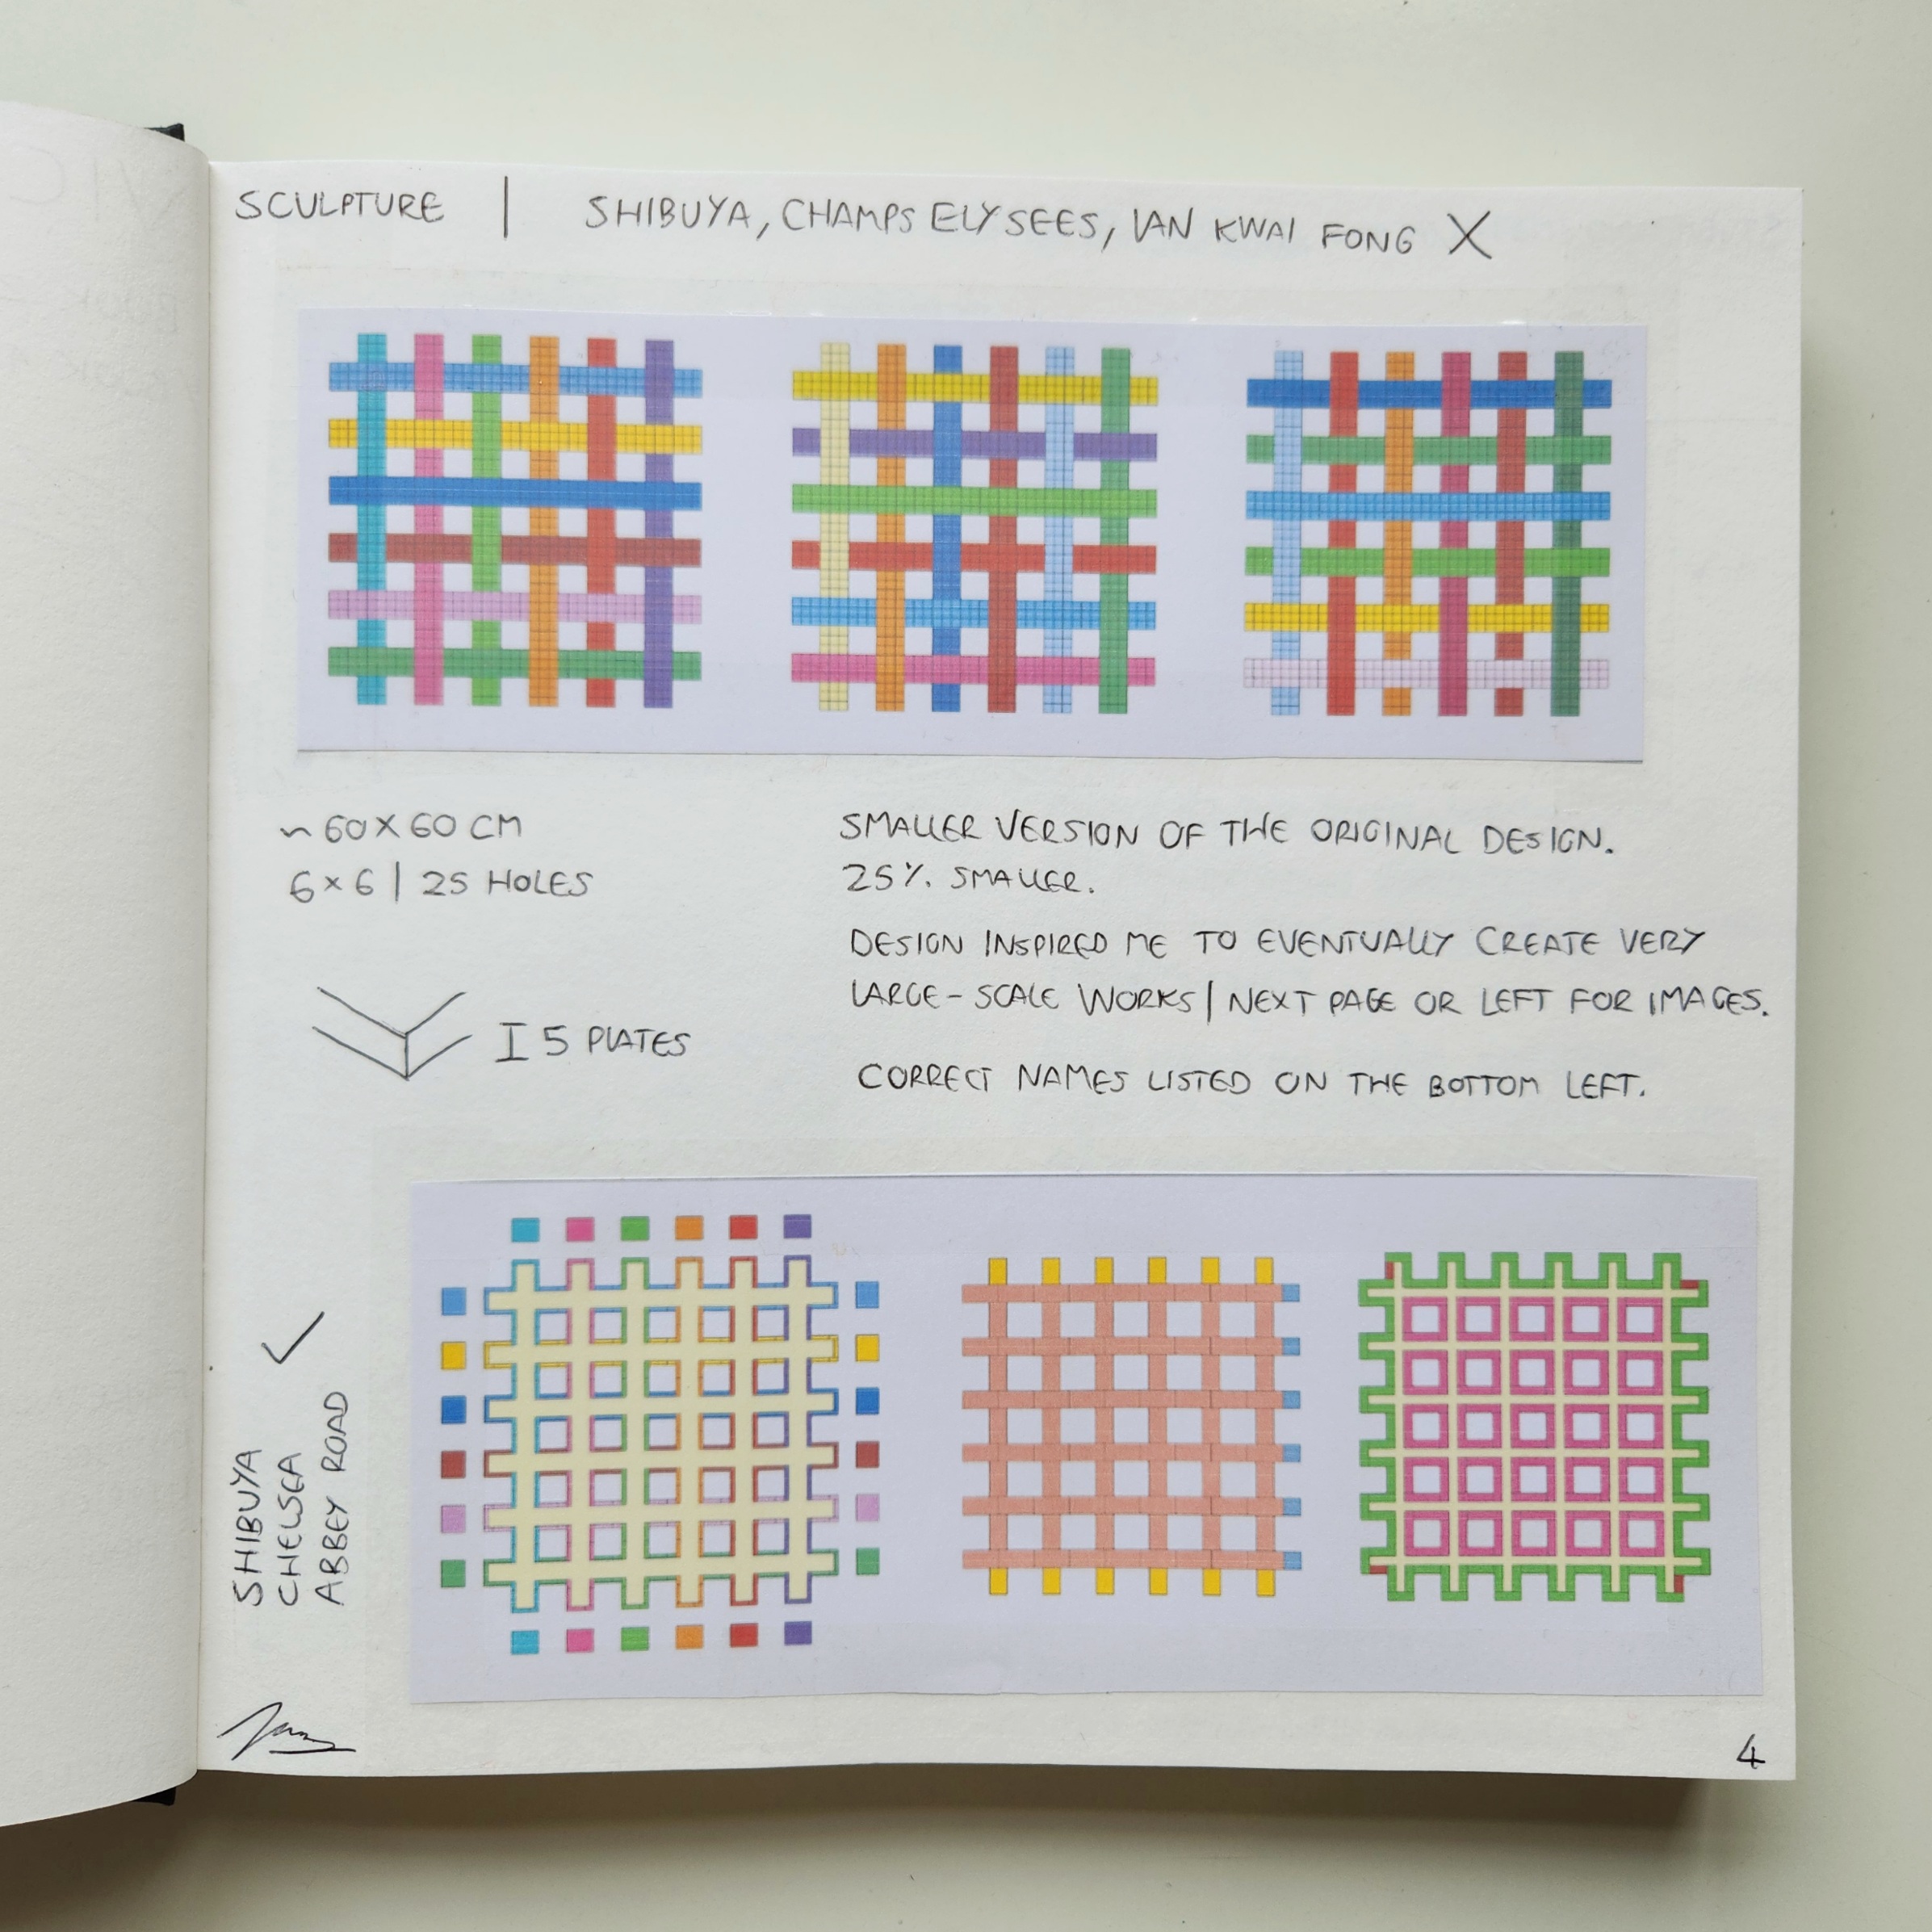 SCULPTURE | SHIBUYA, CHAMPS ELYSEES, LAN KWAI FONG X
~ 60 X 60 CM
6 × 6 | 25 HOLES
SMALLER VERSION OF THE ORIGINAL DESIGN.
25% SMALLER.
DESIGN INSPIRED ME TO EVENTUALLY CREATE VERY
LARGE-SCALE WORKS | NEXT PAGE OR LEFT FOR IMAGES.
CORRECT NAMES LISTED ON THE BOTTOM LEFT.
5 PLATES
SHIBUYA
CHELSEA
ABBEY ROAD
4